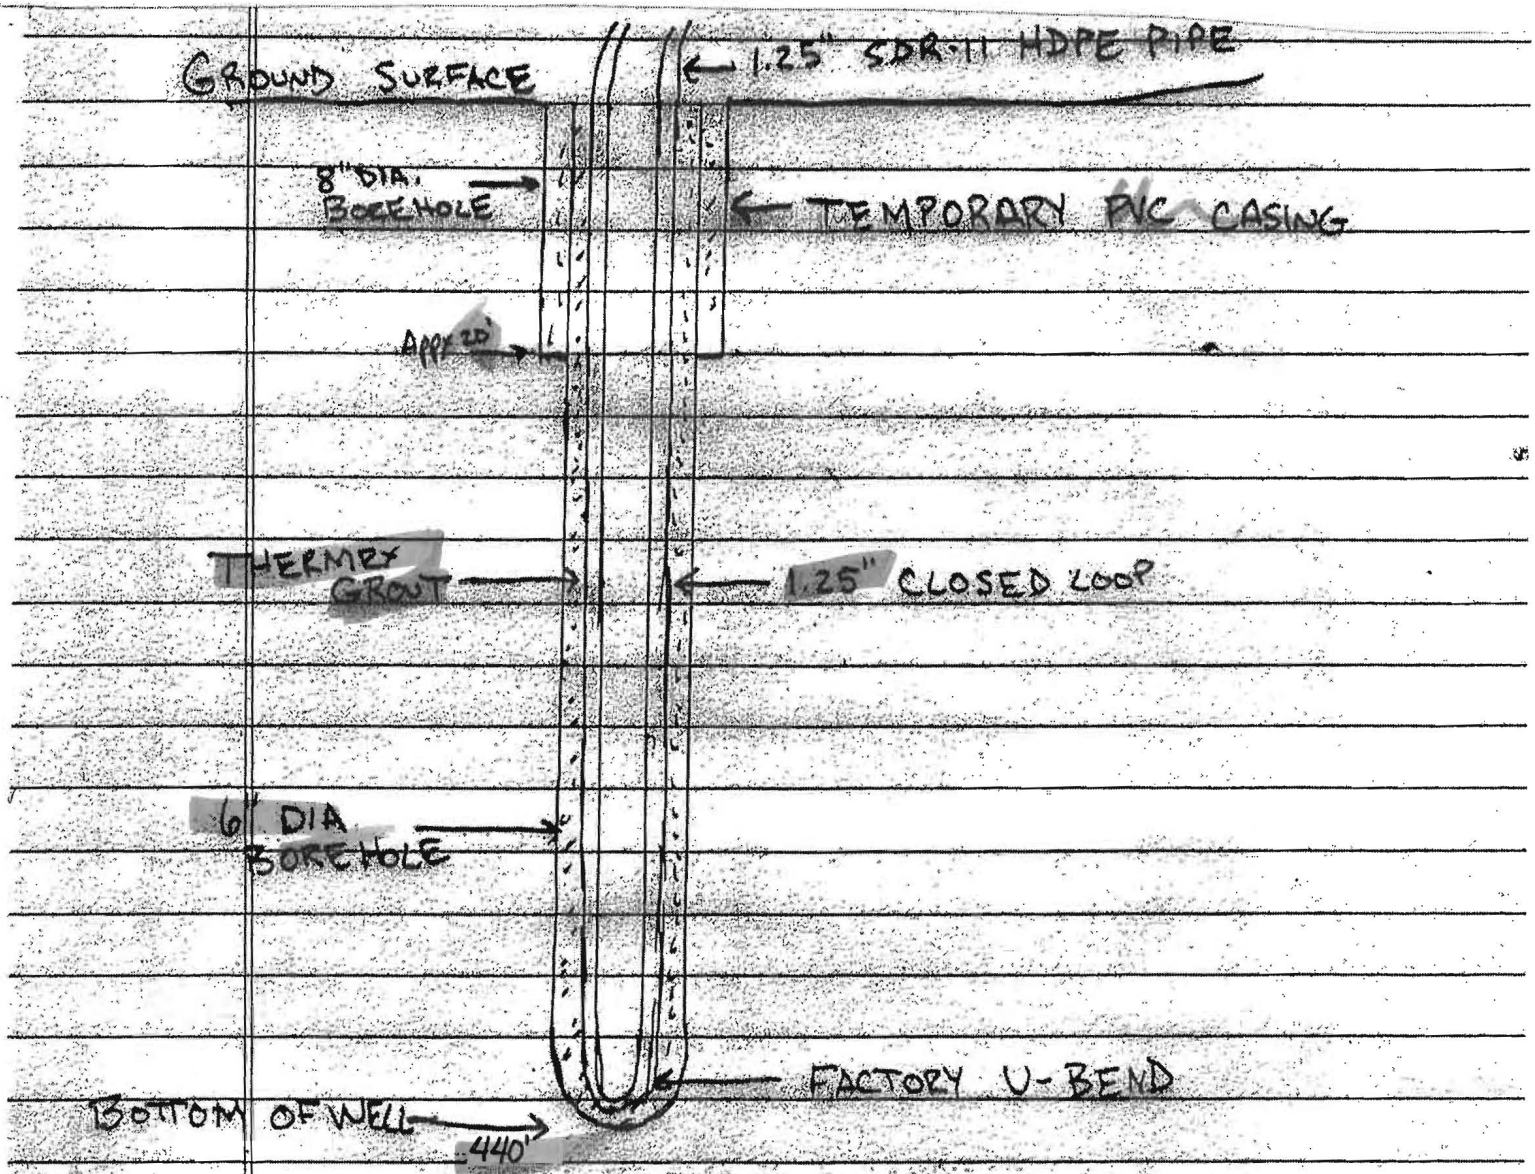 GROUND SURFACE
1.25" SDR-11 HDPE PIPE
8" DIA.
BOREHOLE
TEMPORARY PVC CASING
Appx 20'
THERMEX
GROUT
1.25" CLOSED LOOP
6" DIA
BOREHOLE
FACTORY U-BEND
BOTTOM OF WELL
440'